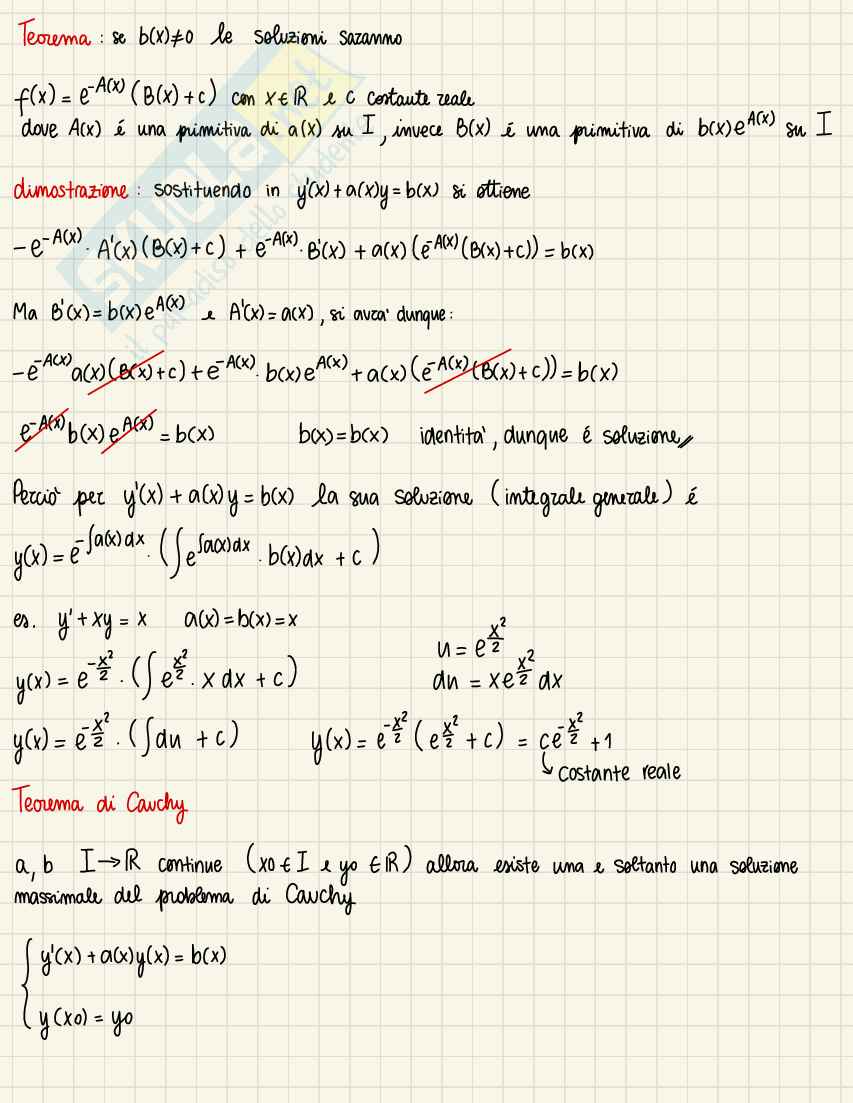 Teorema : se b(x)≠0 le soluzioni saranno
f(x) = e^{-A(x)} (B(x)+c) con x∈ℝ e c costante reale
dove A(x) é una primitiva di a(x) su I, invece B(x) é una primitiva di b(x)e^{A(x)} su I
dimostrazione : sostituendo in y'(x)+a(x)y=b(x) si ottiene
-e^{-A(x)}· A'(x)(B(x)+c) + e^{-A(x)}·B'(x) + a(x)(e^{-A(x)}(B(x)+c)) = b(x)
Ma B'(x)=b(x)e^{A(x)} e A'(x)=a(x), si avra' dunque:
-e^{-A(x)}a(x)(B(x)+c)+e^{-A(x)}·b(x)e^{A(x)}+a(x)(e^{-A(x)}(B(x)+c))=b(x)
e^{-A(x)}b(x)e^{A(x)} = b(x) b(x)=b(x) identita', dunque é soluzione//
Perciò per y'(x)+a(x)y=b(x) la sua soluzione (integrale generale) é
y(x)=e^{-∫a(x)dx}·(∫e^{∫a(x)dx}·b(x)dx + c)
es. y'+xy=x a(x)=b(x)=x
u = e^{x²/2}
y(x) = e^{-x²/2}·(∫e^{x²/2}·x dx + c) du = xe^{x²/2} dx
y(x)= e^{-x²/2}·(∫du + c) y(x)= e^{-x²/2}(e^{x²/2}+c) = ce^{-x²/2}+1
↳ costante reale
Teorema di Cauchy
a, b I→ℝ continue (x0∈I e y0∈ℝ) allora esiste una e soltanto una soluzione
massimale del problema di Cauchy
{ y'(x)+a(x)y(x)=b(x)
y(x0)=y0
SKUOLA.net
il paradiso dello studente